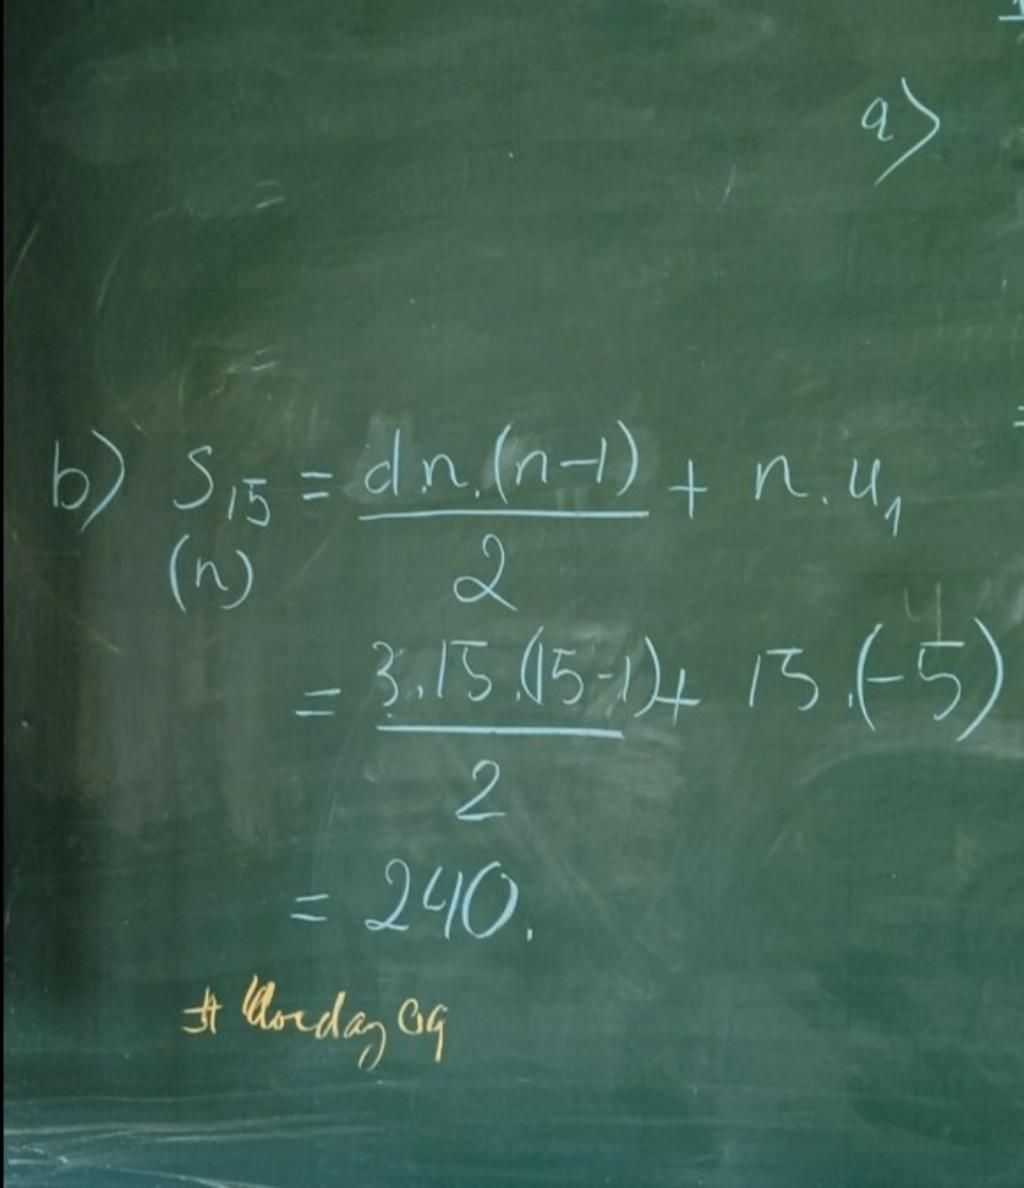 a)
b) S₁₅ = d.n.(n-1)/2 + n.u₁
(n)
= 3.15.(15-1)/2 + 15.(-5)
= 240.